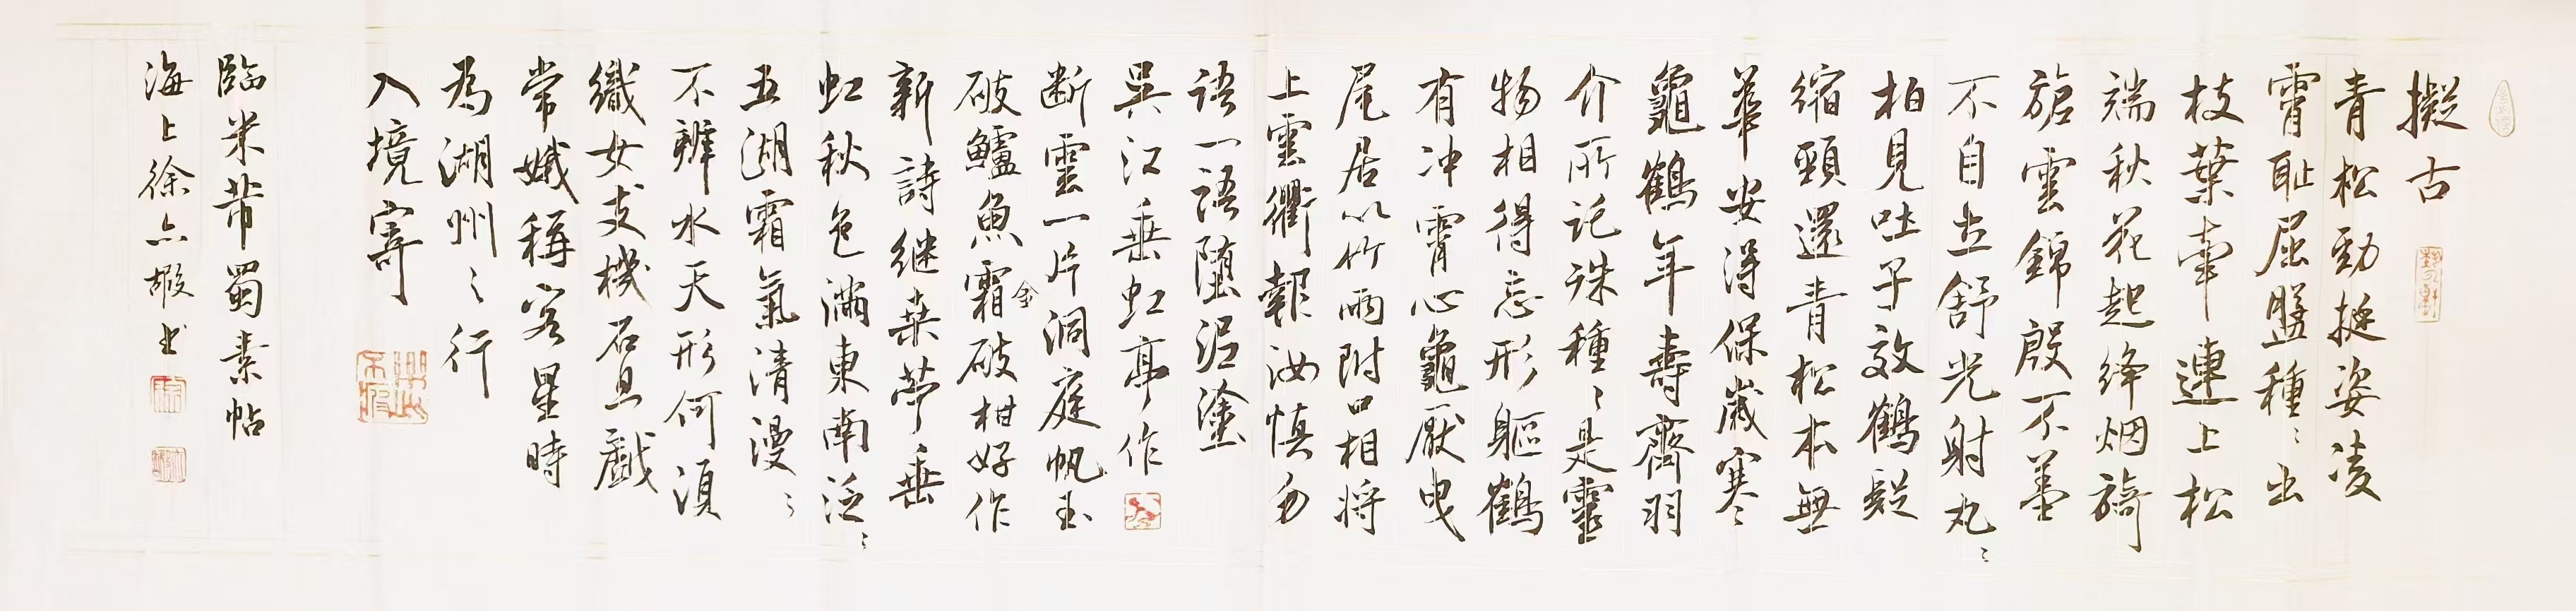 擬古
青松勁挺姿凌
霄恥屈盤種〻出
枝葉牽連上松
端秋花起絳烟旖
旎雲錦殷不羞
不自立舒光射丸〻
柏見吐子效鶴疑
縮頸還青松本無
華安得保歲寒
龜鶴年壽齊羽
介所託殊種〻是靈
物相得忘形軀鶴
有冲霄心龜厭曳
尾居以竹兩附口相將
上雲衢報汝慎勿
語一語墮泥塗
吳江垂虹亭作
断雲一片洞庭帆玉
破鱸魚霜金破柑好作
新詩継桑苧垂
虹秋色滿東南泛〻
五湖霜氣清漫〻
不辨水天形何須
織女支機石且戲
常娥稱客星時
為湖州〻行
入境寄
臨米芾蜀素帖
海上徐书